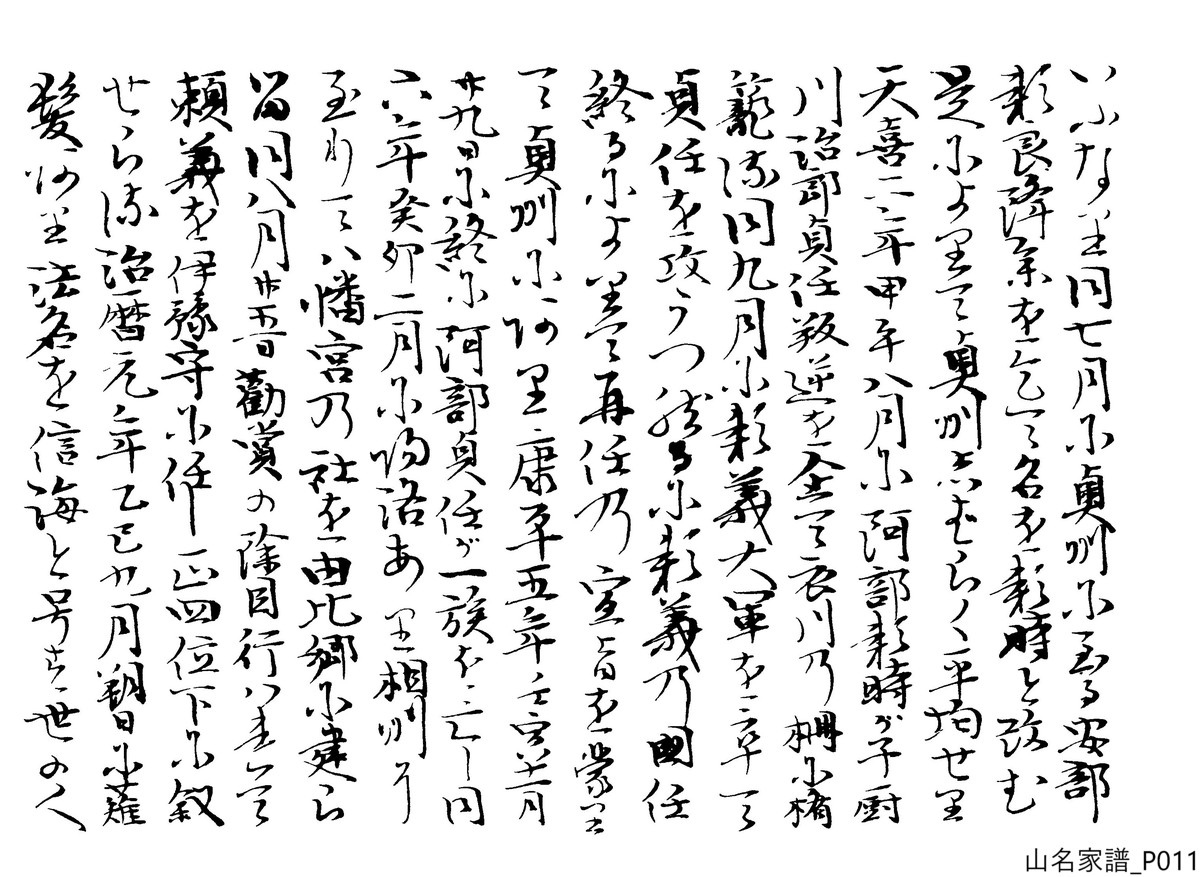 いふなり同七月に奥州に至る安部
頼良降参を乞て名を頼時と改む
是によりて奥州しばらく平均せり
天喜六年甲午八月に阿部頼時が子厨
川治郎貞任叛逆を企て衣川乃柵に楯
籠る同九月に頼義大軍を卒て
貞任を攻うつ然るに頼義乃国任
終るによりて再任乃宣旨を蒙り
て奥州にあり康平五年壬寅十二月
廿九日に終に阿部貞任が一族を亡し同
六年癸卯二月に帰洛あり相州に
至りて八幡宮乃社を由比郷に建ら
る同八月廿五日勧賞の除目行はれて
頼義を伊豫守に任し正四位下に叙
せらる治暦元年乙巳九月朔日に薙
髪あり法名を信海と号す世の人
山名家譜_P011